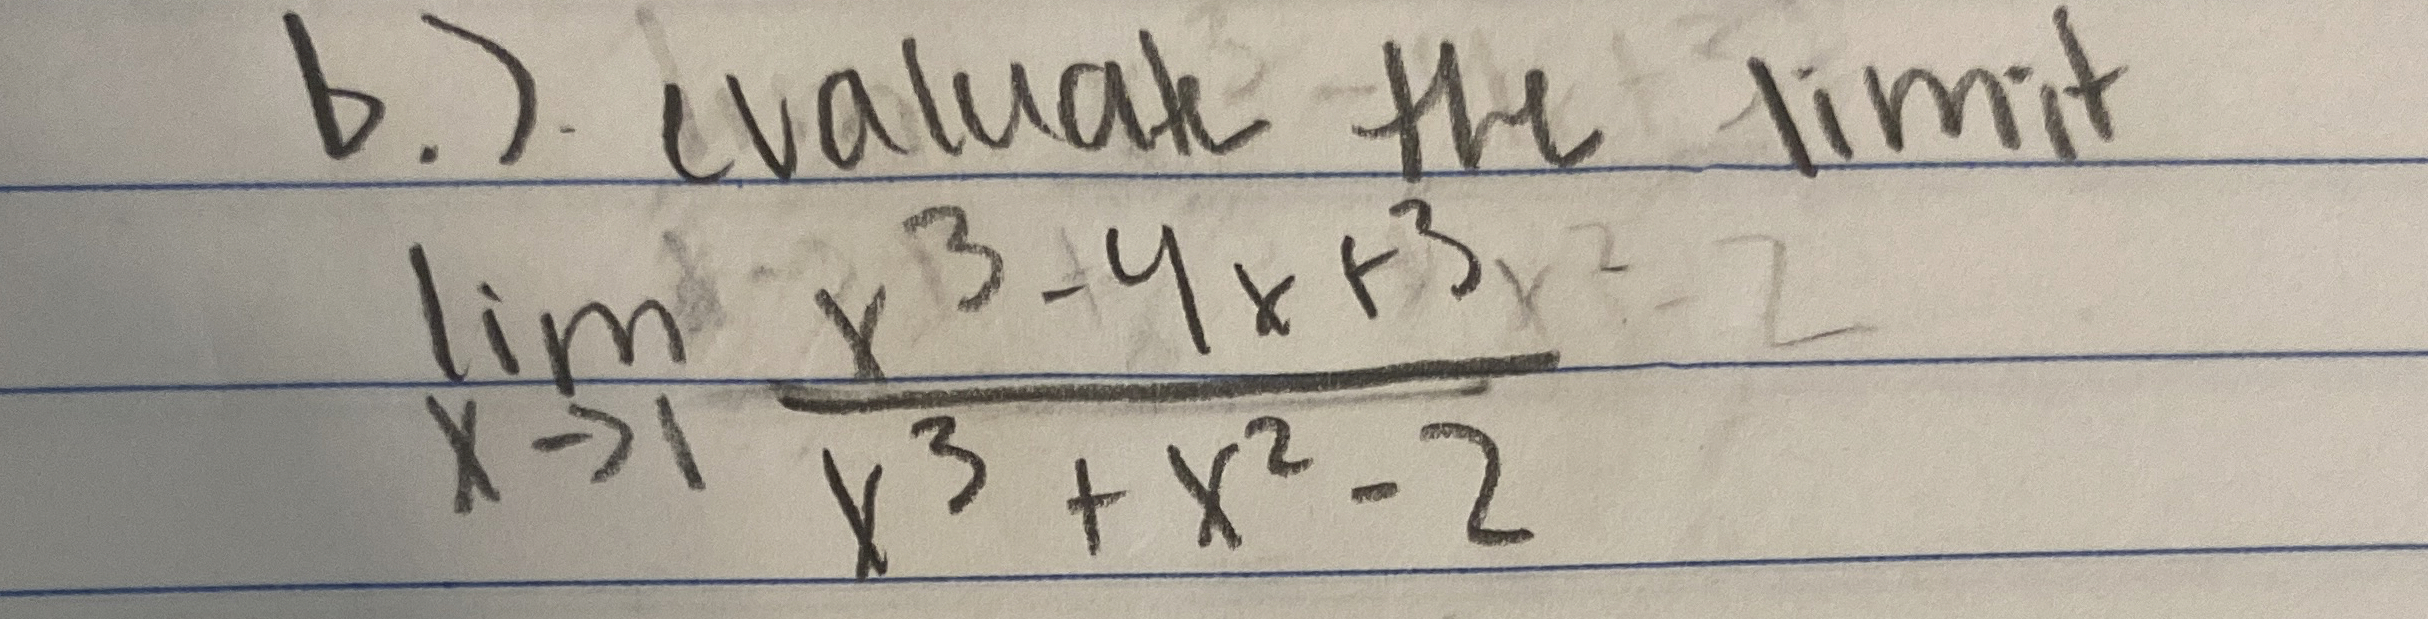 b.). evaluate the limit
lim x³-4x+3
x→1 x³+x²-2